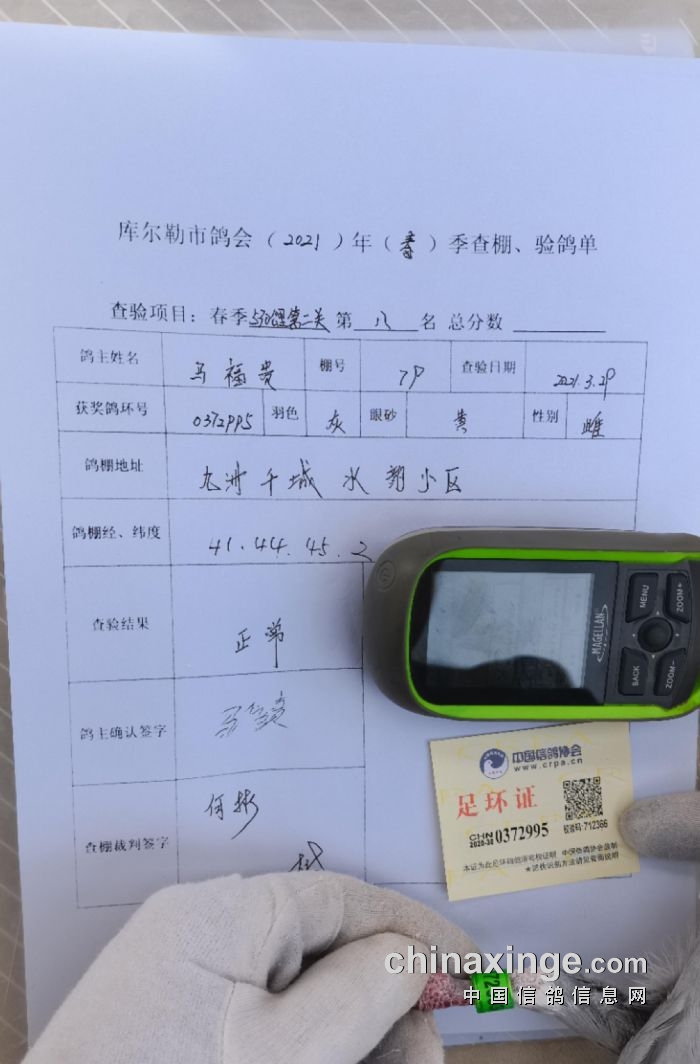 库尔勒市鸽会（2021）年（春）季查棚、验鸽单
查验项目：春季 第二关 第 八 名 总分数
鸽主姓名 马福贵 棚号 79 查验日期 2021.3.29
获奖鸽环号 0372995 羽色 灰 眼砂 黄 性别 雌
鸽棚地址 九洲千城水郡小区
鸽棚经、纬度 41.44.45.2
查验结果 正常
鸽主确认签字
查棚裁判签字 何彬
MAGELLAN
MENU
ZOOM+
BACK
ZOOM-
中国信鸽协会
www.crpa.cn
足环证
CHN
2020-30 0372995
校验码:712366
本证为此足环鸽信鸽有权证明 中国信鸽协会监制
chinaxinge.com
中国信鸽信息网